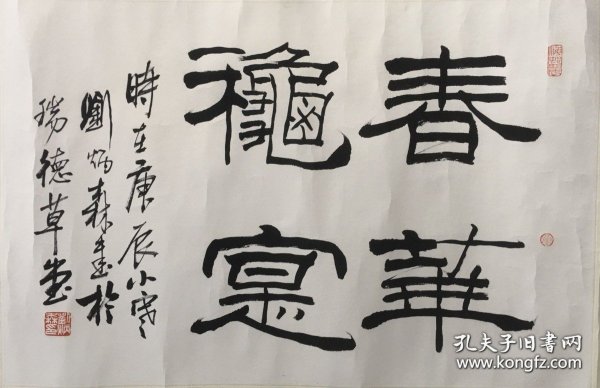 春華
龝寔
時在庚辰小寒
劉炳森書於
瑞德草堂
孔夫子旧书网
www.kongfz.com